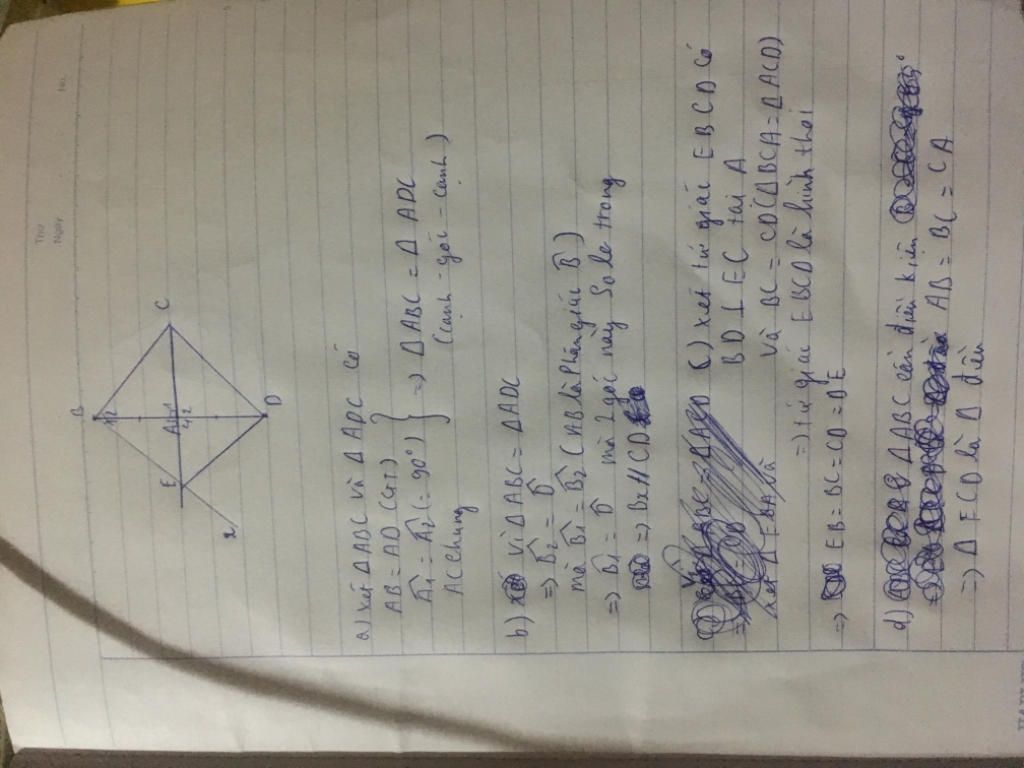 Thứ
Ngày
No.
B
1 2
E
A 1
2
C
D
x
a) xét ΔABC và ΔADC có
AB = AD (GT)
Â1 = Â2 (= 90°) } => ΔABC = ΔADC
AC chung (cạnh - góc - cạnh)
b) vì ΔABC = ΔADC
=> B̂2 = D̂
mà B̂1 = B̂2 (AB là Phân giác B̂)
=> B̂1 = D̂ mà 2 góc này So le trong
=> Bx // CD
c) xét tứ giác EBCD có
BD ⊥ EC tại A
và BC = CD (ΔBCA = ΔACD)
=> tứ giác EBCD là hình thoi
=> EB = BC = CD = DE
d) ΔABC cần điều kiện
AB = BC = CA
=> Δ ECD là Δ đều